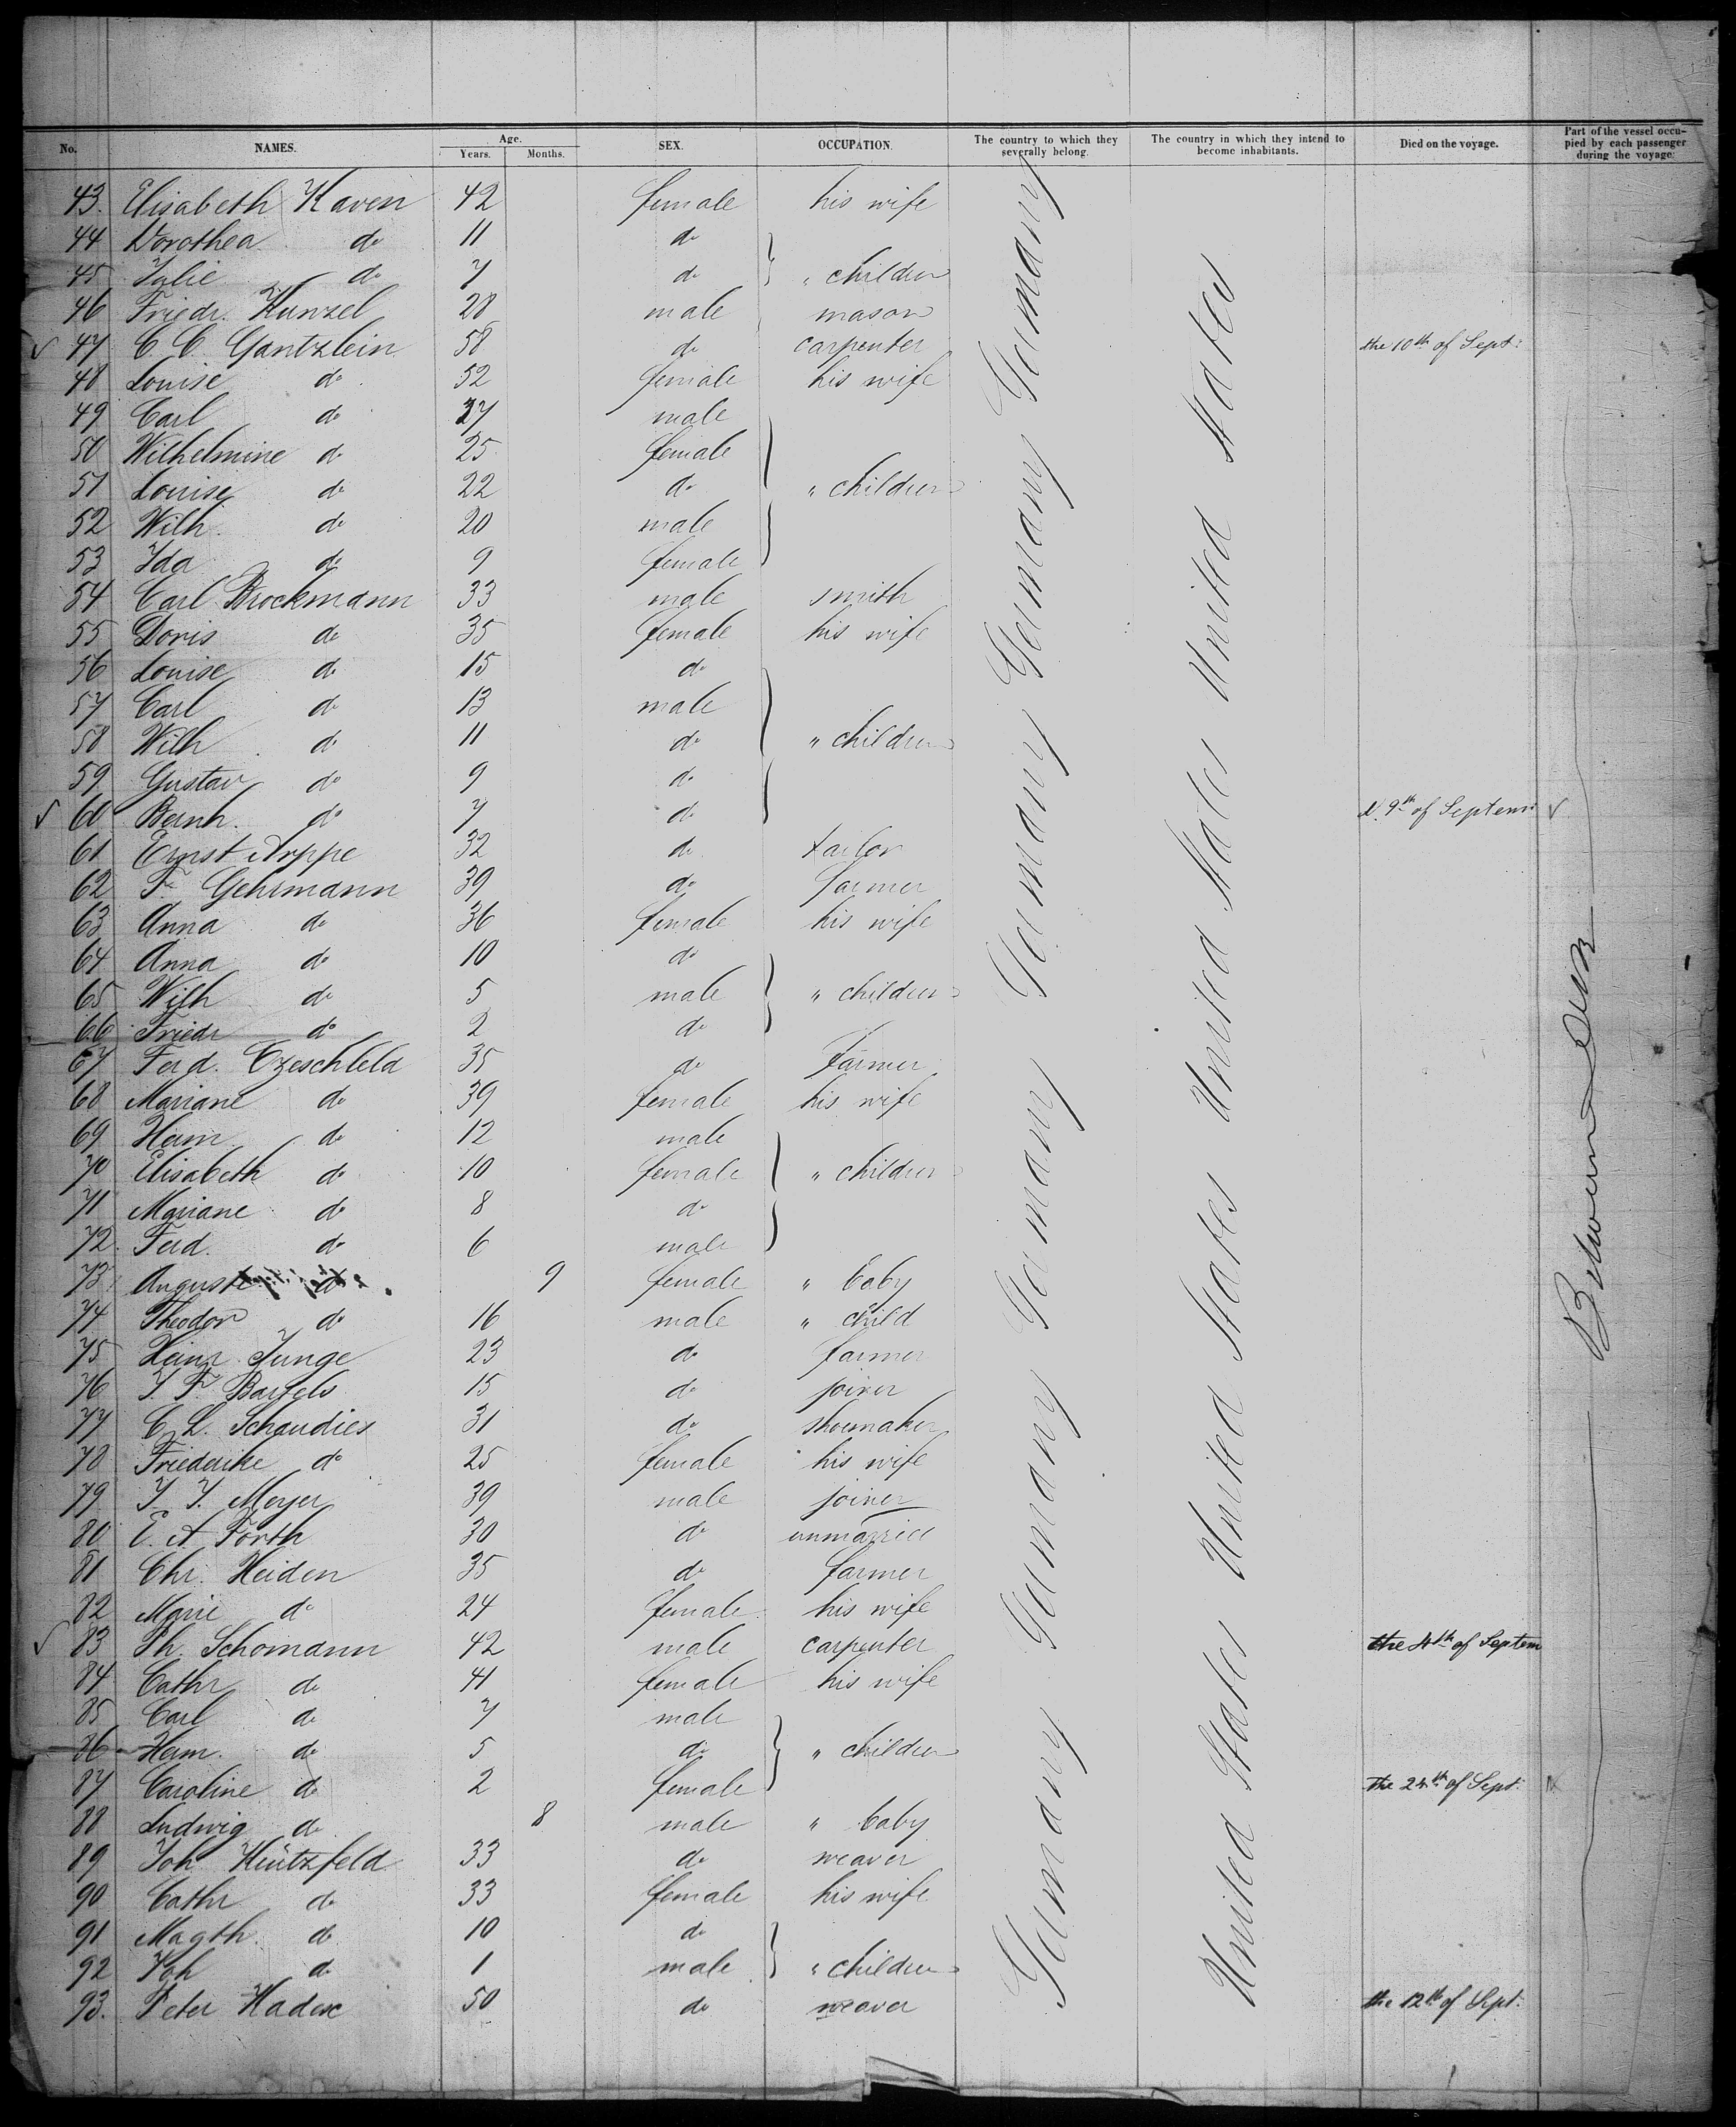 No. NAMES. Age. Years. Months. SEX. OCCUPATION. The country to which they severally belong. The country in which they intend to become inhabitants. Died on the voyage. Part of the vessel occupied by each passenger during the voyage.
43. Elisabeth Kaven 42 female his wife
44 Dorothea do 11 do
45 Julie do 7 do " children
46 Friedr. Kunzel 28 male mason
47 C. C. Gantzlein 58 do carpenter the 10th of Sept:
48 Louise do 52 female his wife
49 Carl do 27 male
50 Wilhelmine do 25 female
51 Louise do 22 do " children
52 Wilh. do 20 male
53 Ida do 9 female
54 Carl Brockmann 33 male smith
55 Doris do 35 female his wife
56 Louise do 15 do
57 Carl do 13 male
58 Wilh do 11 do " children
59 Gustav do 9 do
60 Bernh. do 7 do d. 9th of Septem:
61 Ernst Arppe 32 do tailor
62 F. Gehrmann 39 do farmer
63 Anna do 36 female his wife
64 Anna do 10 do
65 Wilh do 5 male " children
66 Friedr do 2 do
67 Ferd. Czeschleld 35 do Farmer
68 Mariane do 39 female his wife
69 Herm. do 12 male
70 Elisabeth do 10 female " children
71 Mariane do 8 do
72. Ferd. do 6 male
73 Auguste do 9 female " baby
74 Theodor do 16 male " child
75 Heinr. Junge 23 do farmer
76 J. F. Bartels 15 do joiner
77 C. L. Schaudies 31 do shoemaker
78 Friederike do 25 female his wife
79 J. J. Meyer 39 male joiner
80 E. A Forth 30 do unmarried
81 Chr. Heiden 35 do farmer
82 Marie do 24 female his wife
83 Ph. Schomann 42 male carpenter the 4th of Septem
84 Cathr do 41 female his wife
85 Carl do 7 male
86 Herm. do 5 do " children
87 Caroline do 2 female the 24th of Sept:
88 Ludwig do 8 male " baby
89 Joh Küntzfeld 33 do weaver
90 Cathr do 33 female his wife
91 Magth. do 10 do
92 Joh do 1 male " children
93. Peter 50 do weaver the 12th of Sept:
Germany Germany Germany Germany Germany Germany
United States United States United States United States
Between Deck